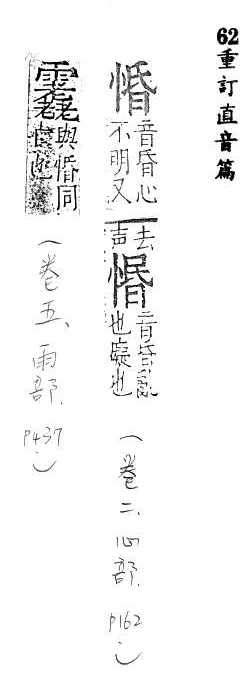 62重訂直音篇
惛
音昏心
不明又
去
声
惽
音昏亂
也癡也
（卷二、心部.P162）
與惛同
（卷五、雨部.P437）